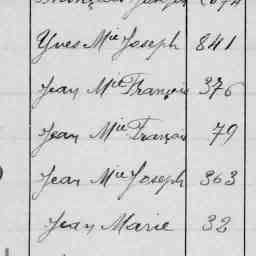 Yves Mie Joseph 841
Jean Mie François 376
Jean Mie François 79
Jean Mie Joseph 363
Jean Marie 32